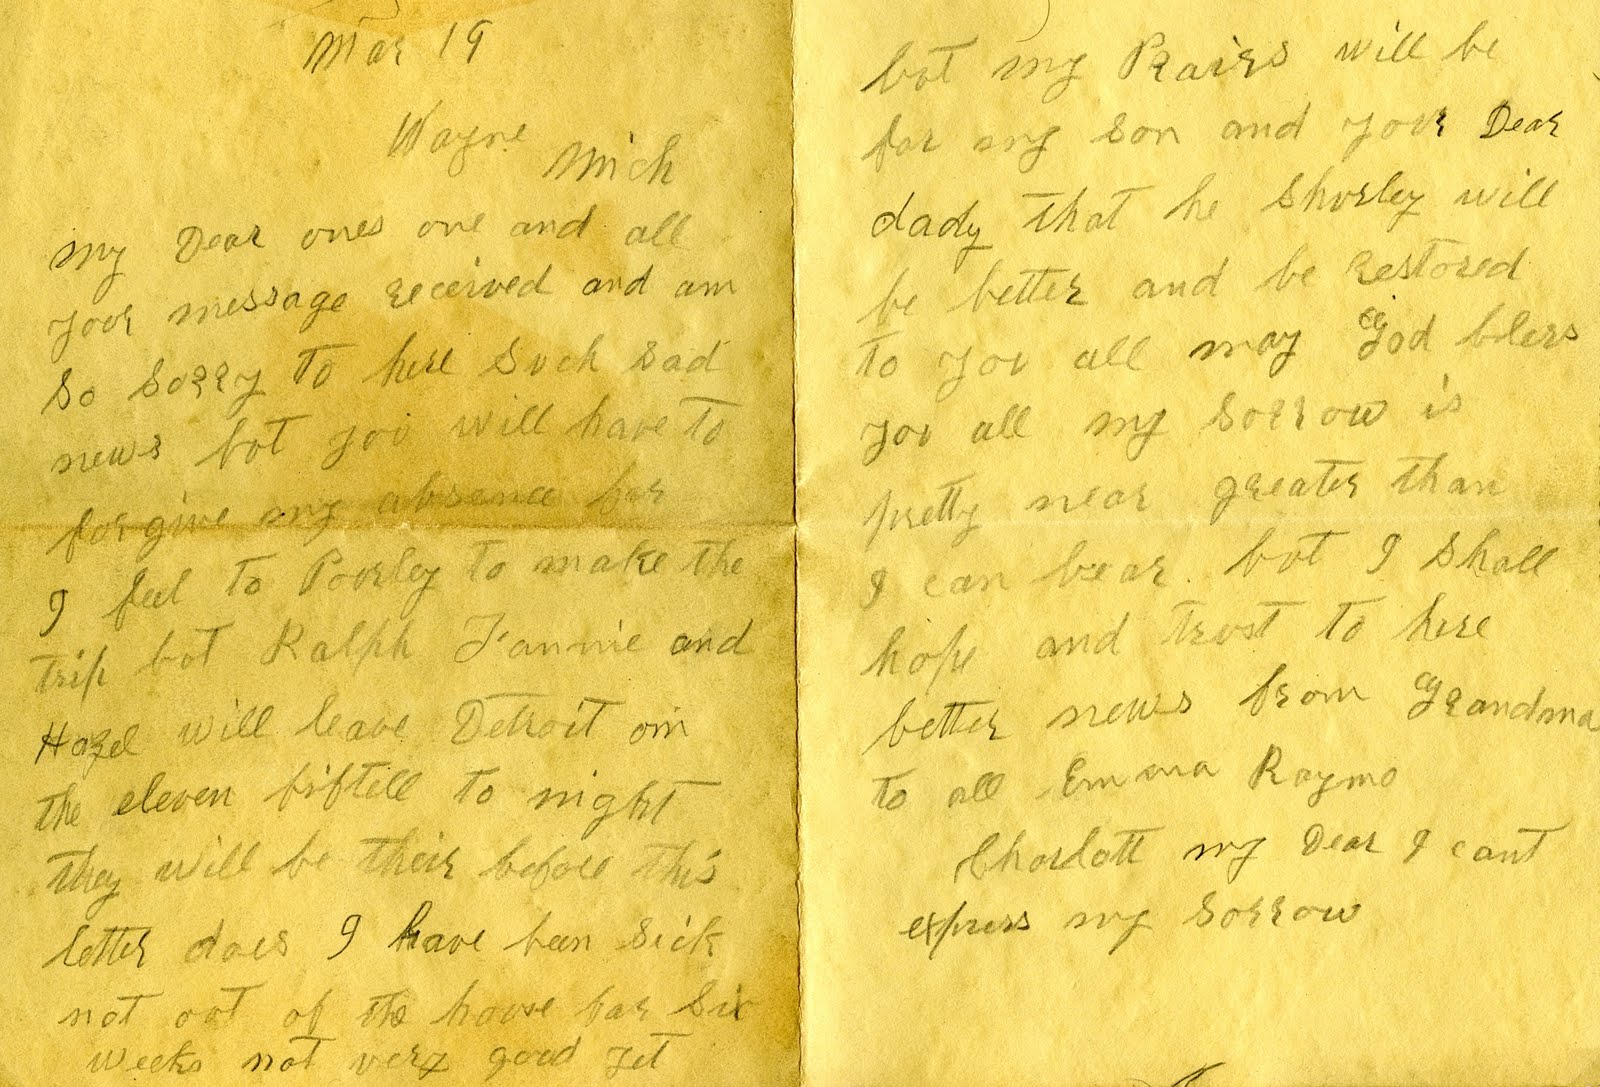 Mar 19
Wayne
Mich
my Dear ones one and all
your message received and am
so sorry to here such sad
news but you will have to
forgive my absence for
I feel to Poorley to make the
trip but Ralph Fannie and
Hazel will leave Detroit on
the eleven fiftell to night
they will be their before this
letter does I have been sick
not out of the house for six
weeks not very good yet
but my Prairs will be
for my son and your Dear
dady that he shurley will
be better and be restored
to you all may god bless
you all my sorrow is
pretty near greater than
I can bear but I shall
hope and trust to here
better news from Grandma
to all Emma Raymo
Charlott my Dear I cant
express my sorrow